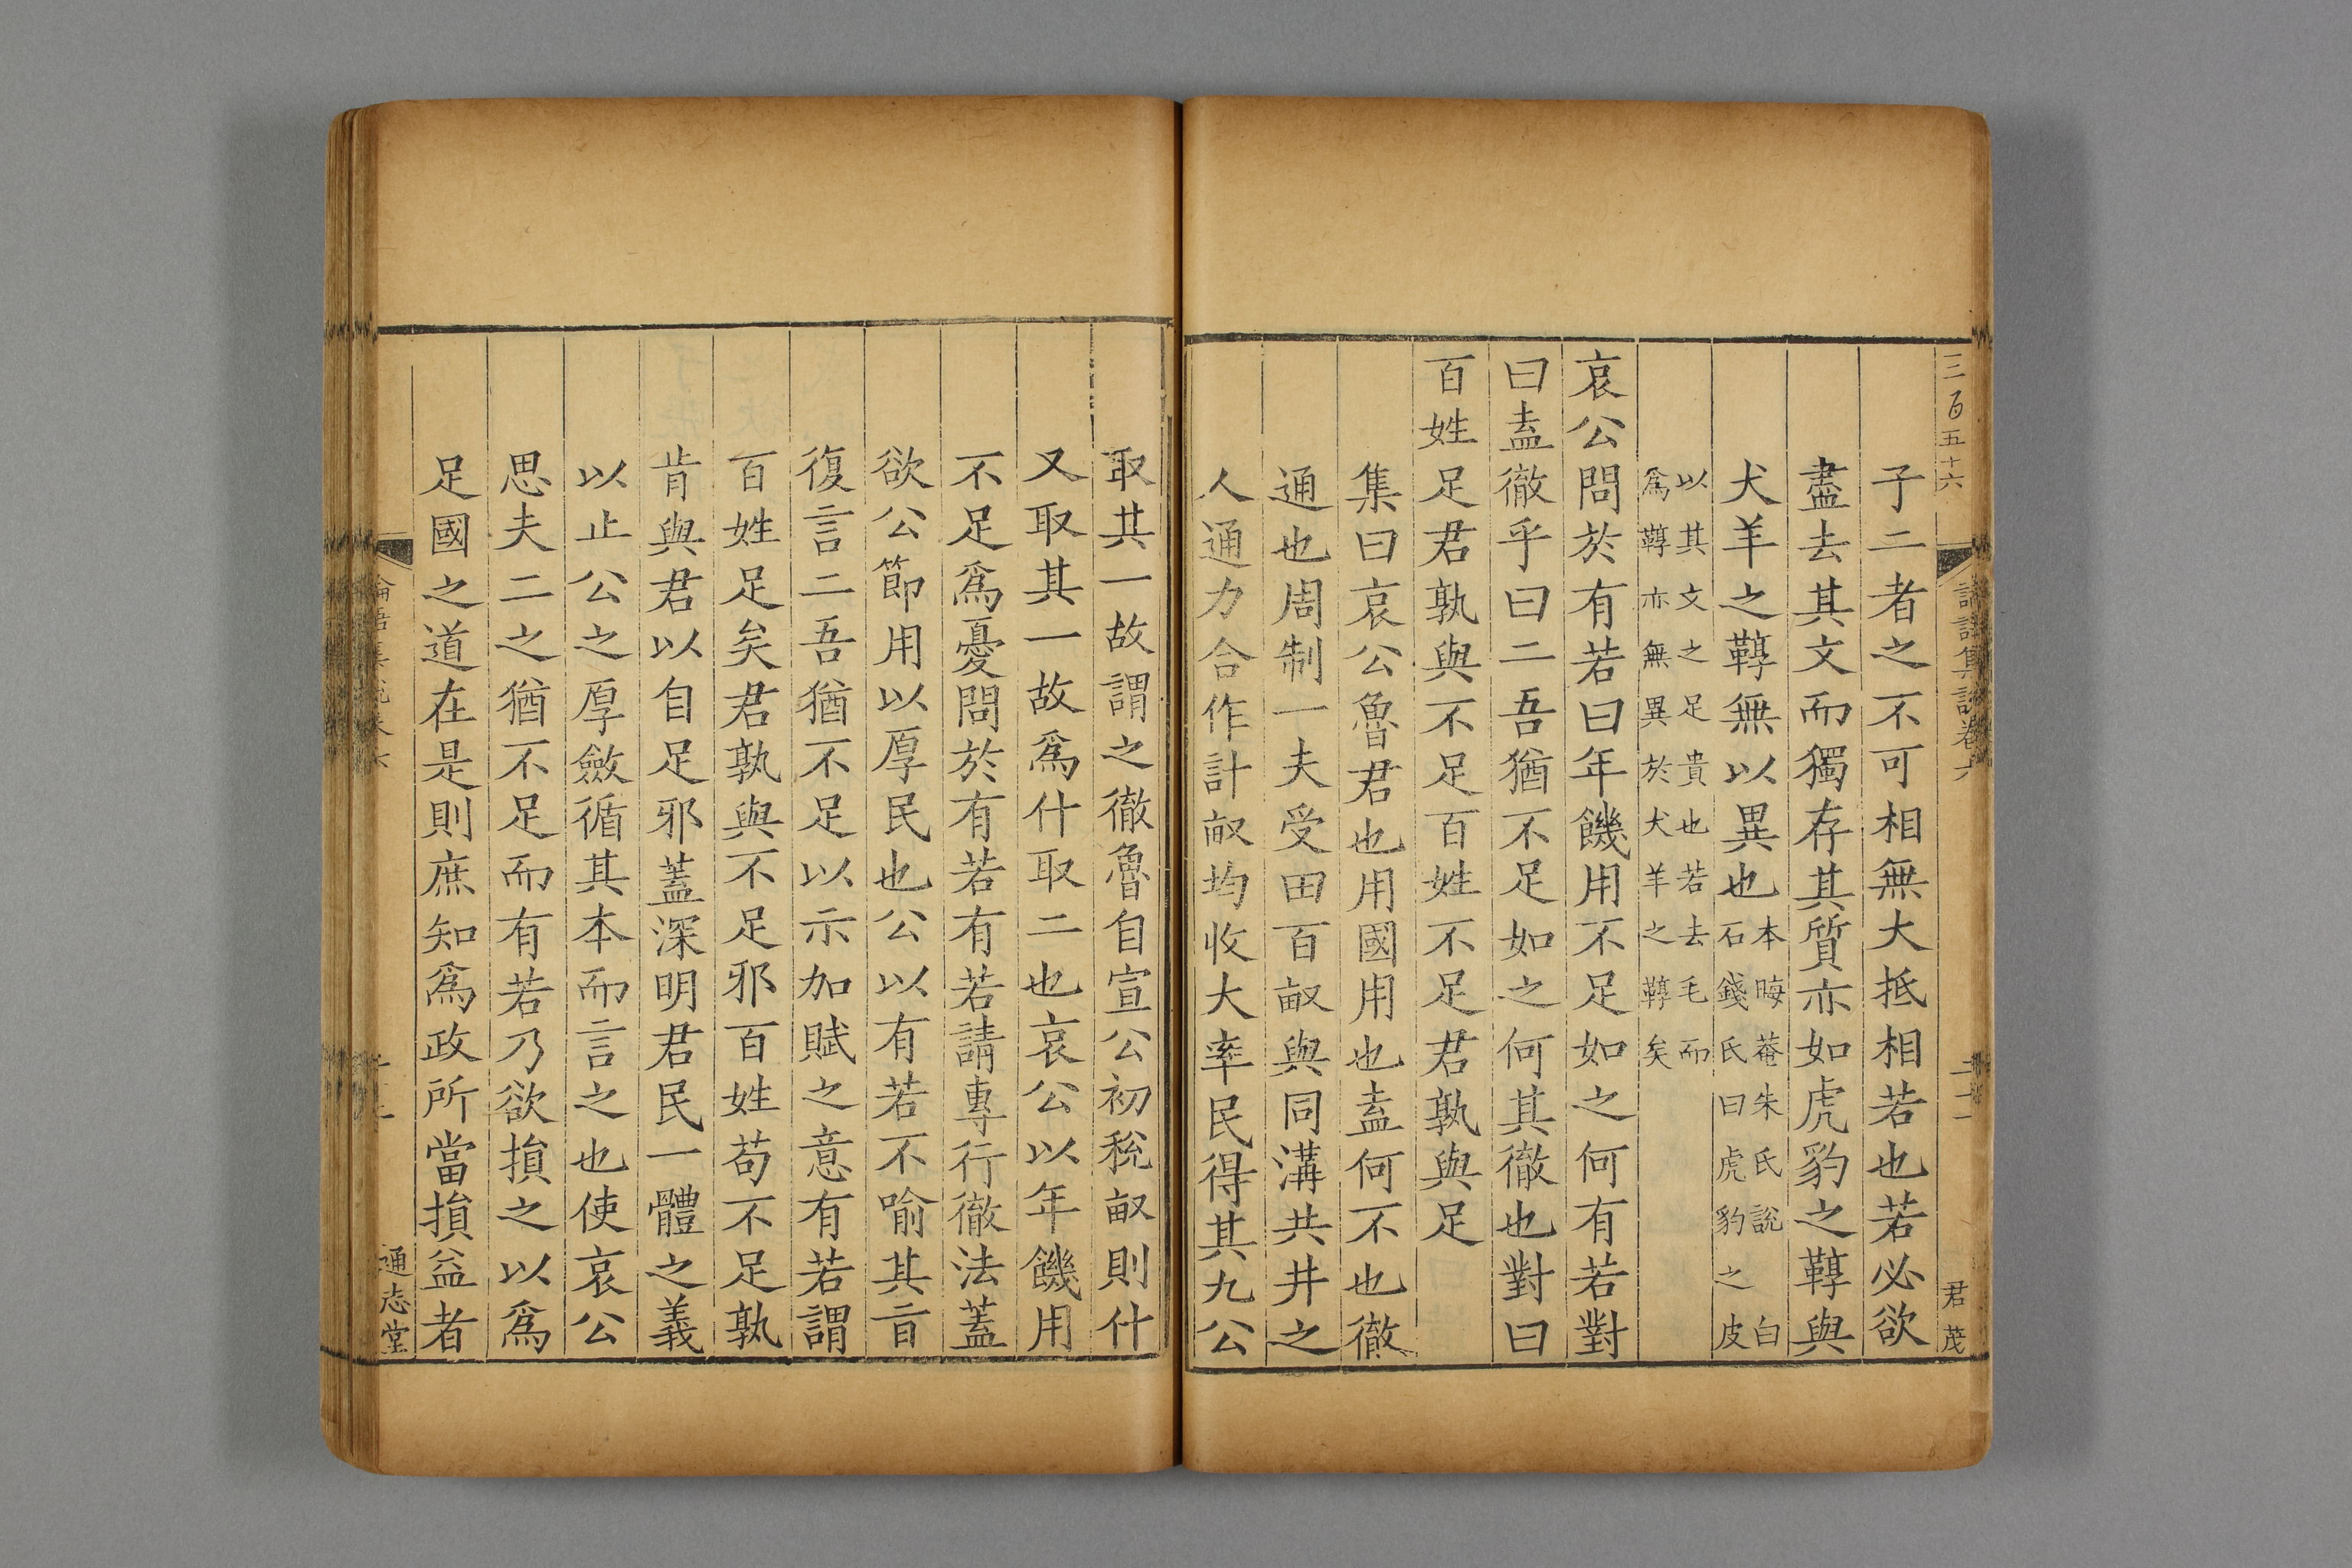 三百五十六
論語集說卷六
二十一
君茂
子二者之不可相無大抵相若也若必欲
盡去其文而獨存其質亦如虎豹之鞟與
犬羊之鞟無以異也本晦菴朱氏說 白
石錢氏曰虎豹之皮
以其文之足貴也若去毛而
爲鞟亦無異於犬羊之鞟矣
哀公問於有若曰年饑用不足如之何有若對
曰盍徹乎曰二吾猶不足如之何其徹也對曰
百姓足君孰與不足百姓不足君孰與足
集曰哀公魯君也用國用也盍何不也徹
通也周制一夫受田百畝與同溝共井之
人通力合作計畝均收大率民得其九公
取其一故謂之徹魯自宣公初稅畝則什
又取其一故爲什取二也哀公以年饑用
不足爲憂問於有若有若請專行徹法蓋
欲公節用以厚民也公以有若不喻其旨
復言二吾猶不足以示加賦之意有若謂
百姓足矣君孰與不足邪百姓苟不足孰
肯與君以自足邪蓋深明君民一體之義
以止公之厚斂循其本而言之也使哀公
思夫二之猶不足而有若乃欲損之以爲
足國之道在是則庶知爲政所當損益者
論語集說卷六
通志堂